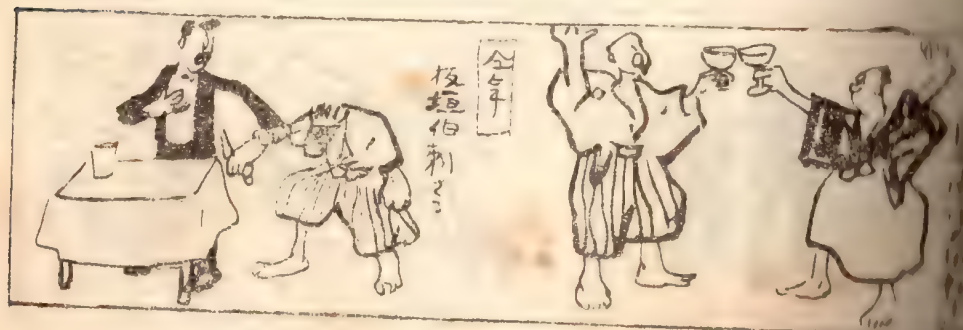 今年
板垣伯刺さる